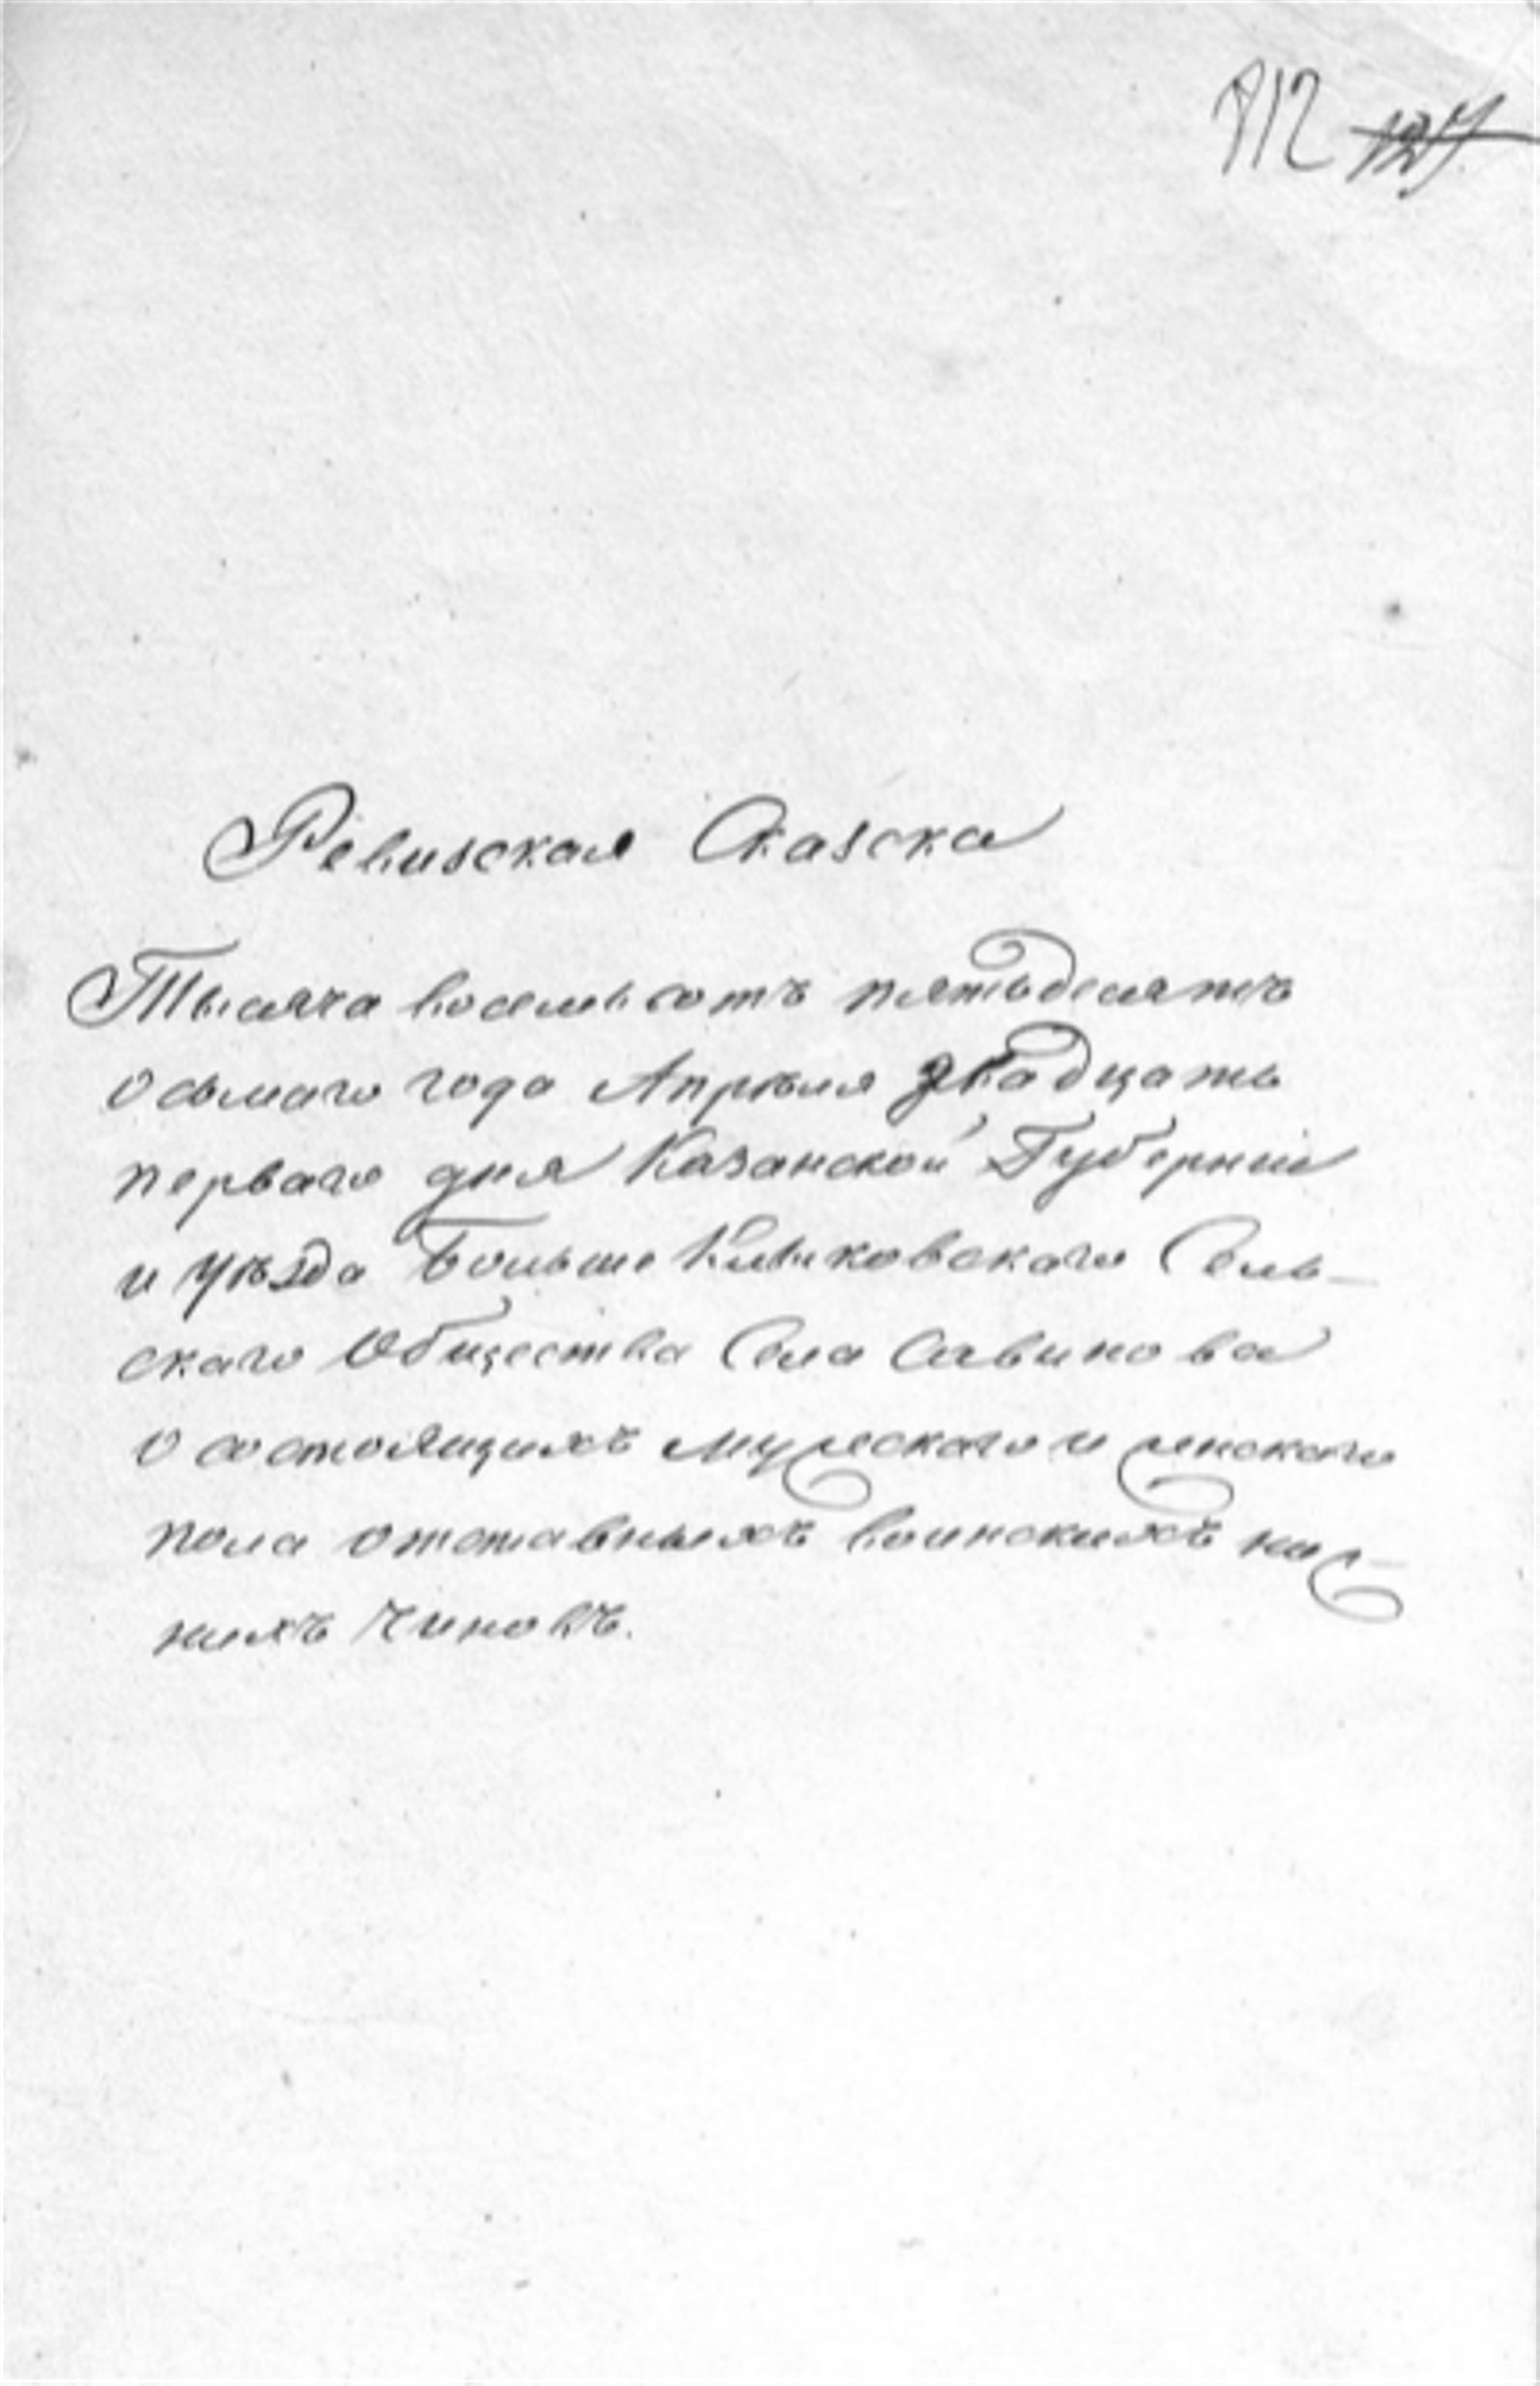 112 127
Ревизская Сказска
Тысяча восемьсотъ пятьдесятъ
осьмаго года Апрѣля двадцать
перваго дня Казанской Губерніи
и Уѣзда Больше Кляковскаго Сель-
скаго Общества Села Савинова
о состоящихъ мужескаго и женскаго
пола отставныхъ воинскихъ ниж-
нихъ чиновъ.